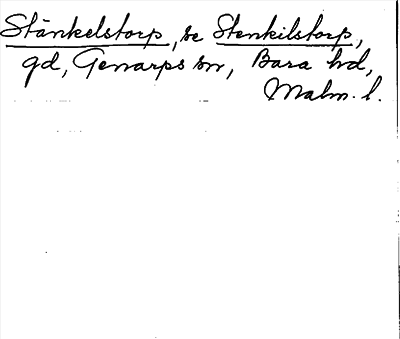 Stänkelstorp, se Stenkilstorp,
gd, Genarps sn, Bara hd,
Malm. l.